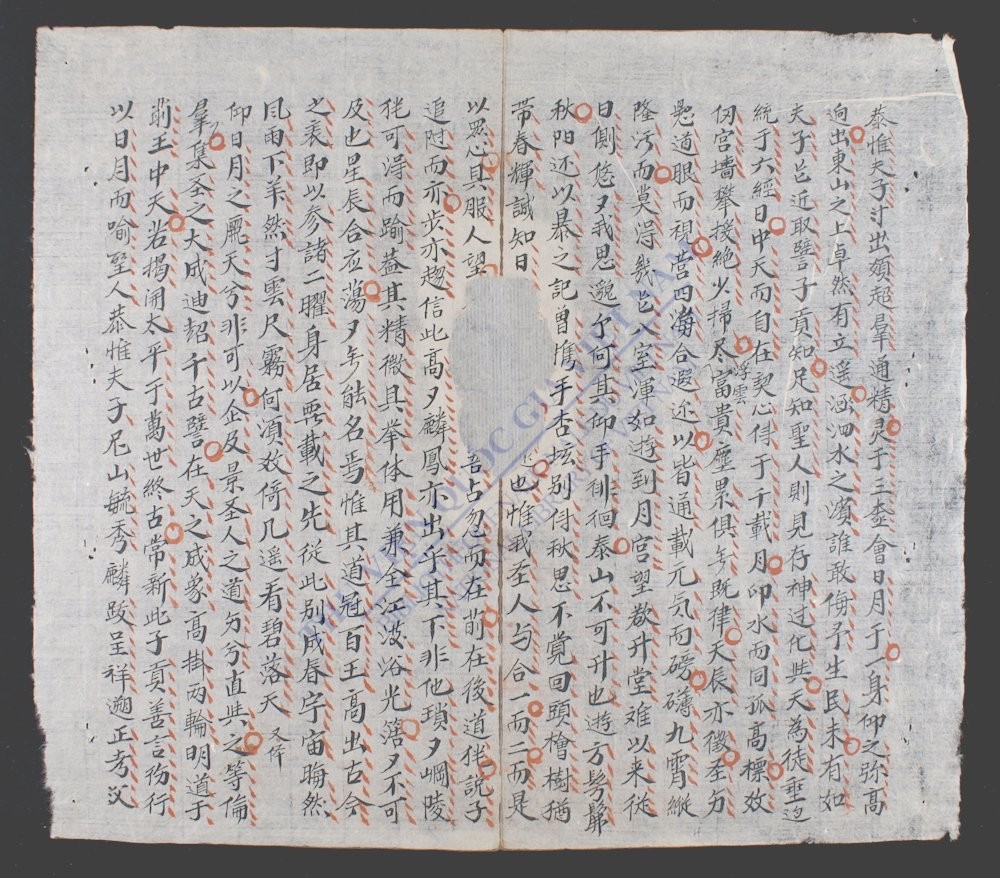 恭惟夫子寸出類超羣通精灵于三才會日月于一身仰之弥高
逈出東山之上卓然有立遥涵泗水之濱誰敢侮予生民未有如
夫子也近取譬子貢知足知聖人則見存神过化與天為徒垂迈
統于六經日中天而自在契心侍于千載月印水而同孤高標效
仞宫墻攀援絶少掃尽浮雲富貴塵累俱无既律天辰亦徽圣匀
懸道眼而視营四海合遐迩以皆通載元気而磅礴九霄縱
隆污而莫淂幾也入室渾如遊到月宫望欲升堂难以来従
日側悠夕我思邈乎何其仰手徘徊泰山不可升也遊方髣髴
秋阳还以暴之記曾携手杏坛别侍秋思不覚回頭檜樹猶
带春輝誠知日也惟我圣人与合一而二而是
以思心具服人望吾占忽而在前在後道体説子
追陞而亦步亦趨信此高夕麟鳳亦出乎其下非他瑣夕岡陵
侂可淂而踰蓋其精微具挙体用兼全江漢浴光簜夕不可
及也星辰合应蕩夕无能名焉惟其道冠百王高出古今
之表即以参諸二曜身居覆載之先従此别成春宇宙晦然
風雨下羊然寸雲尺霧何湏效倚几遥看碧落天 又作
仰日月之麗天兮非可以企及景圣人之道匀兮直與之等倫
羣集圣之大成迪韶千古譬在天之成象高掛两輪明道于
前王中天若揭開太平于萬世終古常新此子貢善言徳行
以日月而喻聖人恭惟夫子尼山毓秀麟趺呈祥遡正考父
THƯ VIỆN QUỐC GIA VIỆT NAM